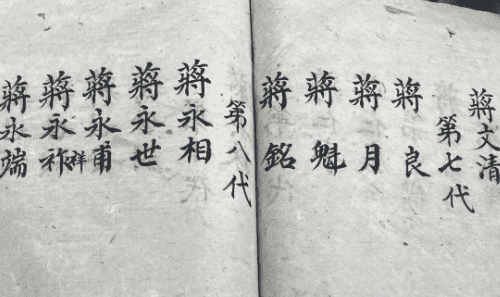 蔣文清
第七代
蔣良
蔣月
蔣魁
蔣銘
第八代
蔣永相
蔣永世
蔣永甫
蔣永祚祥
蔣永端